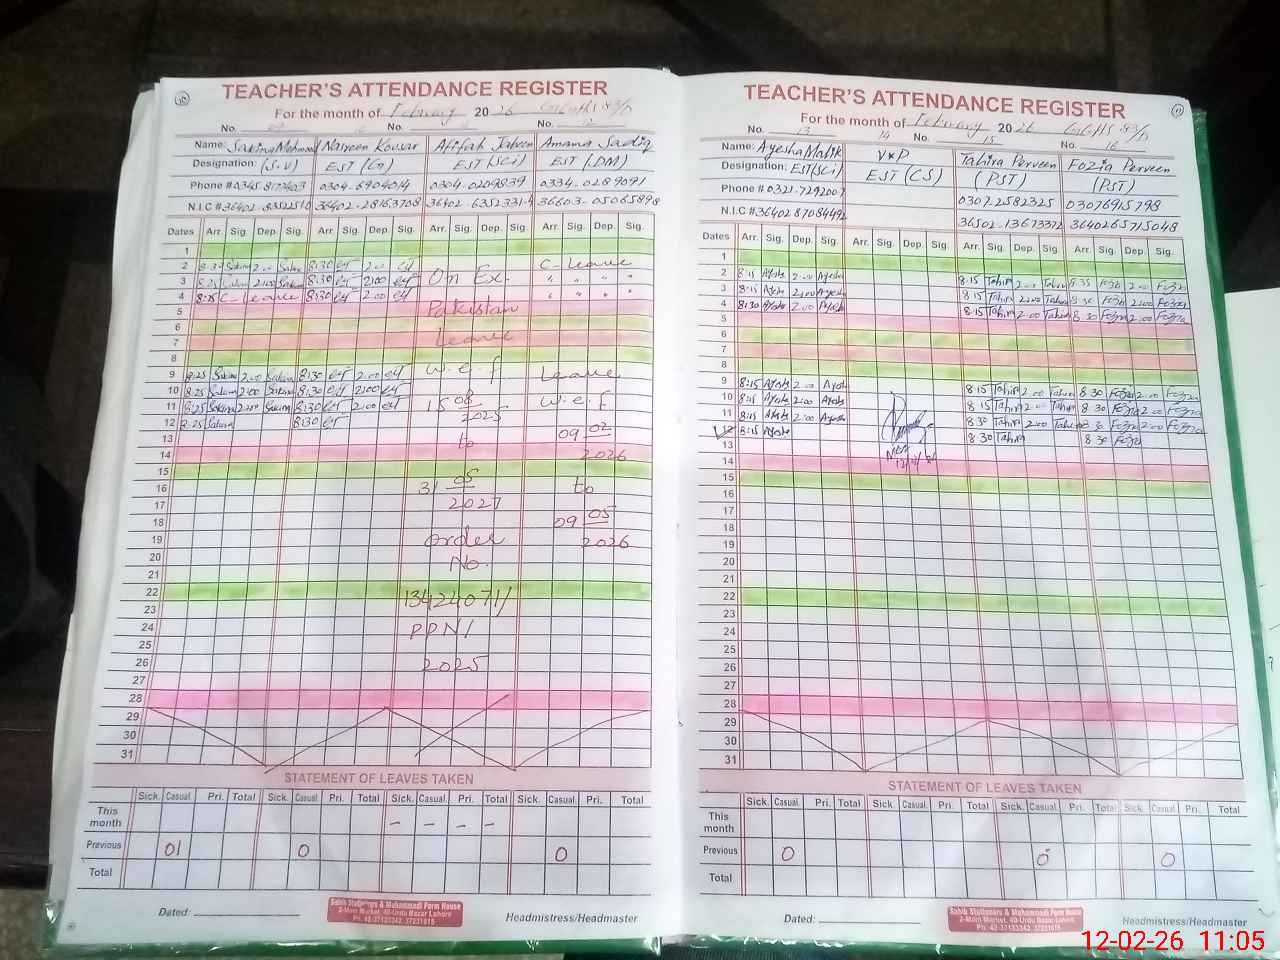 TEACHER'S ATTENDANCE REGISTER
For the month of February 2026
No. No. No.
Name: Sakina Mehmood Nasreen Kousar Afifah Jabeen Amama Sadiq
Designation: (S.V) EST (G) EST (SCi) EST (DM)
Phone # 0345.8177403 0304.6904014 0304.0209839 0334.0289091
N.I.C # 36402.8352251 36402.28163708 36402.6352331-4 36603.05065898
Dates Arr. Sig. Dep. Sig. Arr. Sig. Dep. Sig. Arr. Sig. Dep. Sig. Arr. Sig. Dep. Sig.
1
2 Sakina 2.00 Sakina 8:30 2.00 C-Leave
3 8:25 Sakina 2:00 Sakina 8:30 2:00 On Ex. " " "
4 8:25 C-Leave 8:30 2.00 " " "
5 Pakistan
6
7 Leave
8
9 8:25 Sakina 2.00 Sakina 8:30 2.00 w.e.f Leave
10 8:25 Sakina 2:00 Sakina 8:30 2:00
11 8:25 Sakina 2:00 Sakina 8:30 2.00 15 08 2025 w.e.f
12 8:25 Sakina 8:30
13 to 09 02
14 2026
15
16 31 05 to
17 2027
18 09 05
19 order 2026
20 No.
21
22 13424071/
23
24 PPN/
25
26 2025
27
28
29
30
31
STATEMENT OF LEAVES TAKEN
Sick. Casual. Pri. Total Sick. Casual. Pri. Total Sick. Casual. Pri. Total Sick. Casual. Pri. Total
This month - - - -
Previous 01 0 0
Total
Dated:
Sahib Stationers & Muhammadi Form House
2-Main Market, 40-Urdu Bazar Lahore
Ph: 42-37133342, 37231615
Headmistress/Headmaster
TEACHER'S ATTENDANCE REGISTER
For the month of February 2026
No. 13 14 No. 15 No. 16
Name: Ayesha Malik V*P Tahira Perveen Fozia Perveen
Designation: EST(SCi) EST (CS) (PST) (PST)
Phone # 0321.7292007 03072582325 03076915798
N.I.C # 36402 87084492 36502.13673372 3640265715048
Dates Arr. Sig. Dep. Sig. Arr. Sig. Dep. Sig. Arr. Sig. Dep. Sig. Arr. Sig. Dep. Sig.
1
2 8:15 Ayesha 2.00 Ayesha 8:15 Tahira 2:00 Tahira 8 35 Fozia 2.00 Fozia
3 8:15 Ayesha 2:00 Ayesha 8:15 Tahira 2:00 Tahira 8 30 Fozia 2:00 Fozia
4 8:30 Ayesha 2:00 Ayesha 8:15 Tahira 2:00 Tahira 8 30 Fozia 2:00 Fozia
5
6
7
8
9 8:15 Ayesha 2.00 Ayesha 8:15 Tahira 2.00 Tahira 8 30 Fozia 2.00 Fozia
10 8:15 Ayesha 2:00 Ayesha 8:15 Tahira 2:00 Tahira 8 30 Fozia 2.00 Fozia
11 8:15 Ayesha 2:00 Ayesha 8:30 Tahira 2:00 Tahira 8 30 Fozia 2.00 Fozia
12 8:15 Ayesha 8 30 Tahira 8 30 Fozia
13
14
15
16
17
18
19
20
21
22
23
24
25
26
27
28
29
30
31
STATEMENT OF LEAVES TAKEN
Sick. Casual. Pri. Total Sick. Casual. Pri. Total Sick. Casual. Pri. Total Sick. Casual. Pri. Total
This month
Previous 0 0 0
Total
Dated:
Sahib Stationers & Muhammadi Form House
2-Main Market, 40-Urdu Bazar Lahore
Ph: 42-37133342, 37231615
Headmistress/Headmaster
12-02-26 11:05